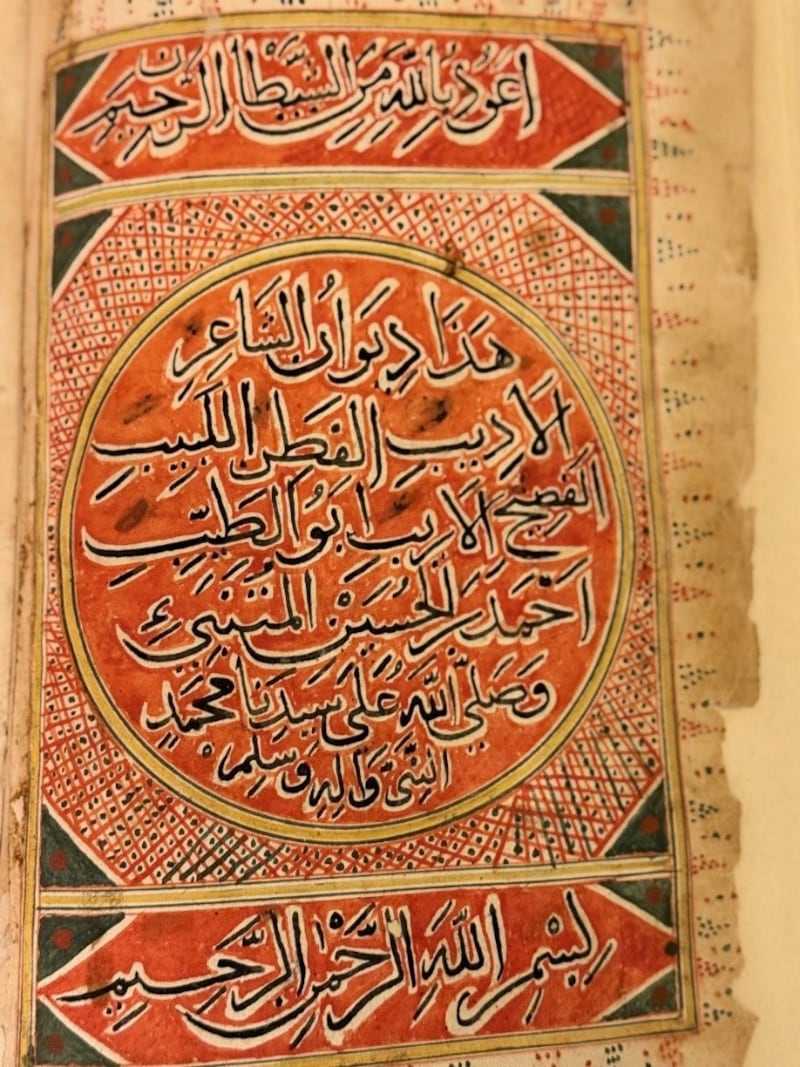 اَعُوذُ بِاللّٰهِ مِنَ الشَّيْطَانِ الرَّحِيمِ
هَذَا دِيوَانُ الشَّاعِرِ
الاَدِيبِ الفَطِنِ اللَّبِيبِ
الفَصِيحِ الاَرِيبِ ابُو الطَّيِّبِ
اَحْمَد بن الحُسَيْنِ المُتَنَبِّيءِ
وَصَلَّى اللَّهُ عَلَى سَيِّدِنَا مُحَمَّدٍ
النَّبِيِّ وَآلِهِ وَسَلَّمَ
بِسْمِ اللَّهِ الرَّحْمٰنِ الرَّحِيمِ